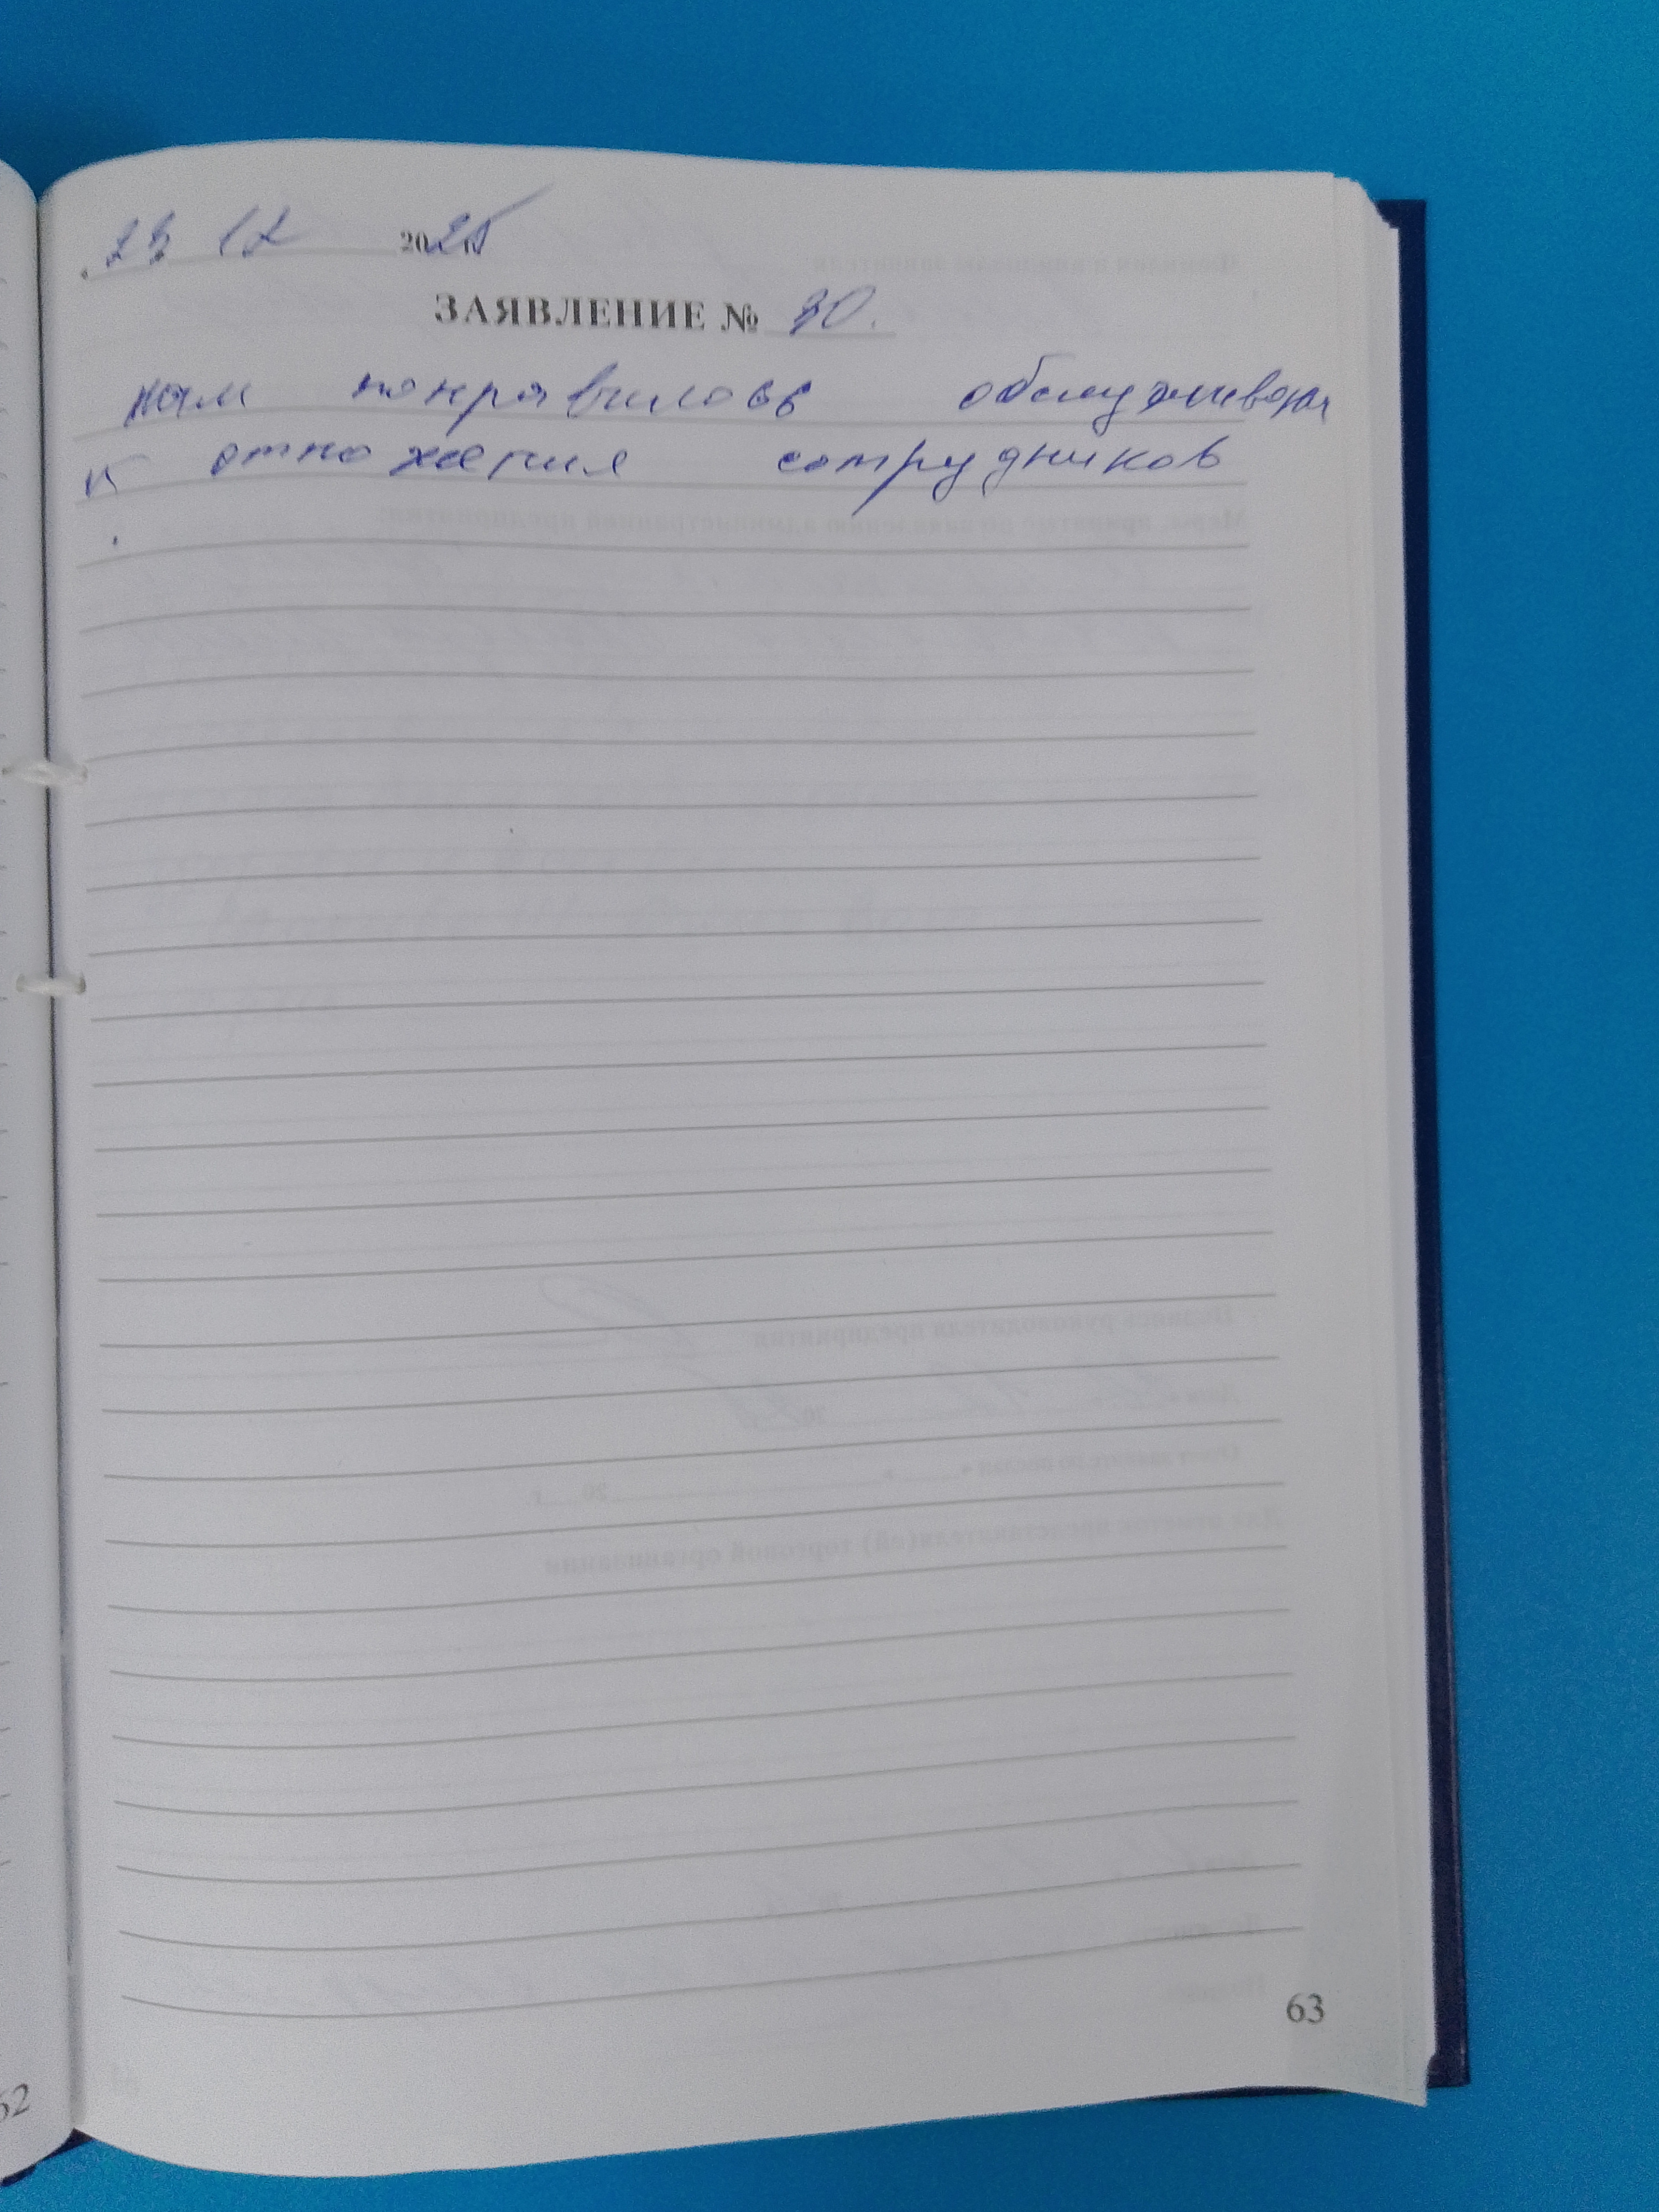 23 12 2025
ЗАЯВЛЕНИЕ № 30.
нам понравилось обслуживан
и отножения сотрудников
63
62